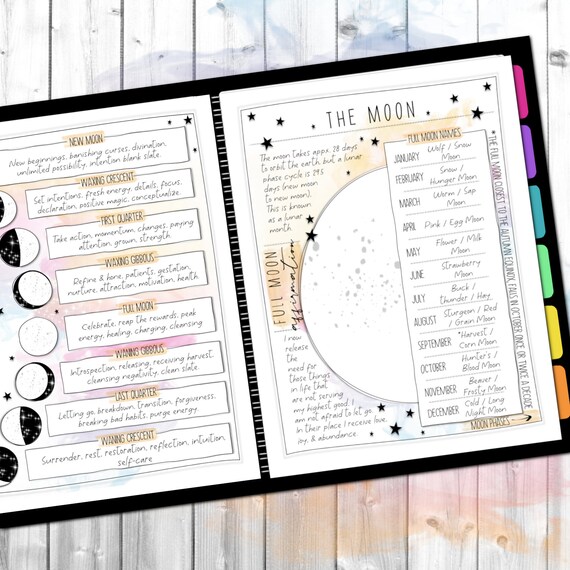 NEW MOON
New beginnings, banishing curses, divination,
unlimited possibility, intention blank slate.
WAXING CRESCENT
Set intentions, fresh energy, details, focus,
declaration, positive magic, conceptualize.
FIRST QUARTER
Take action, momentum, changes, paying
attention, grown, strength.
WAXING GIBBOUS
Refine & hone, patients, gestation,
nurture, attraction, motivation, health.
FULL MOON
Celebrate, reap the rewards, peak
energy, healing, charging, cleansing
WANING GIBBOUS
Introspection, releasing, receiving harvest,
cleansing negativity, clean slate.
LAST QUARTER
Letting go, breakdown, transition, forgiveness,
breaking bad habits, purge energy.
WANING CRESCENT
Surrender, rest, restoration, reflection, intuition,
self-care
THE MOON
The moon takes appx. 28 days
to orbit the earth but a lunar
phase cycle is 29.5
days (new moon
to new moon).
This is known
as a lunar
month.
FULL MOON
affirmation
I now
release
the
need for
those things
in life that
are not serving
my highest good. I
am not afraid to let go.
In their place I receive love,
joy, & abundance.
FULL MOON NAMES
JANUARY Wolf / Snow Moon
FEBRUARY Snow / Hunger Moon
MARCH Worm / Sap Moon
APRIL Pink / Egg Moon
MAY Flower / Milk Moon
JUNE Strawberry Moon
JULY Buck / thunder / Hay
AUGUST Sturgeon / Red / Grain Moon
SEPTEMBER *Harvest / Corn Moon
OCTOBER Hunter's / Blood Moon
NOVEMBER Beaver / Frosty Moon
DECEMBER Cold / Long Night Moon
*THE FULL MOON CLOSEST TO THE AUTUMN EQUINOX, FALLS IN OCTOBER ONCE OR TWICE A DECADE
MOON PHASES